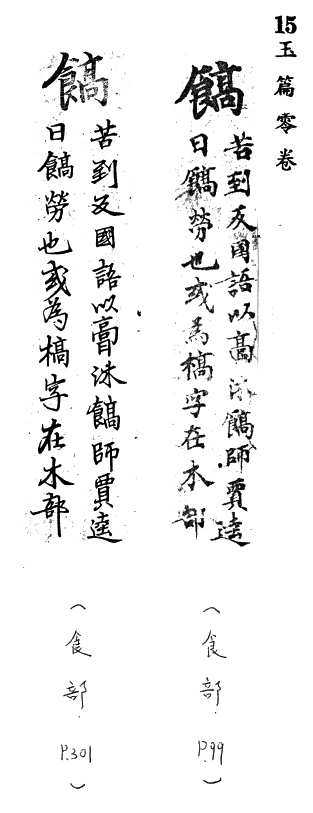 15玉篇零卷
苦到反國語以膏沐師賈逵
曰勞也或為槁字在木部
(食部.P.99)
苦到反國語以膏沐師賈逵
曰勞也或為槁字在木部
(食部.P.301)